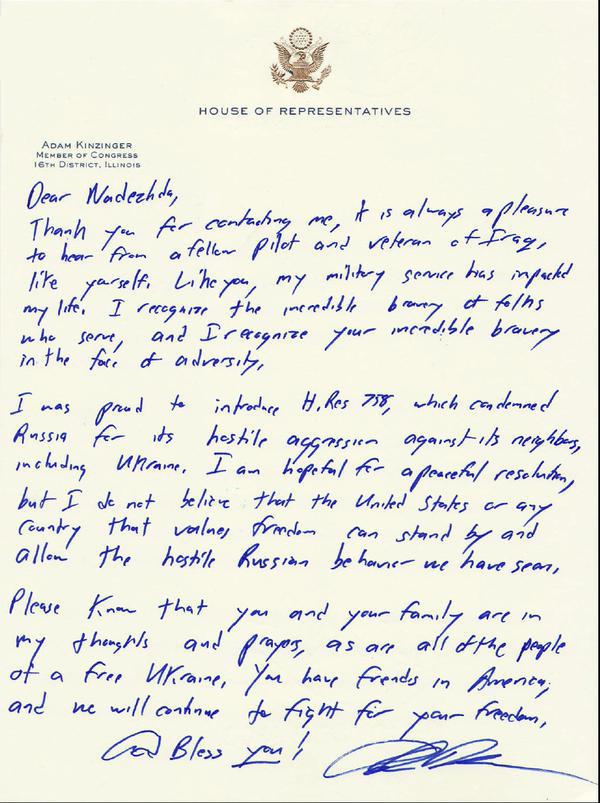 HOUSE OF REPRESENTATIVES
ADAM KINZINGER
MEMBER OF CONGRESS
16TH DISTRICT, ILLINOIS
Dear Nadezhda,
Thank you for contacting me, it is always a pleasure
to hear from a fellow pilot and veteran of Iraq,
like yourself. Like you, my military service has impacted
my life. I recognize the incredible bravery of folks
who serve, and I recognize your incredible bravery
in the face of adversity.
I was proud to introduce H.Res 758, which condemned
Russia for its hostile aggression against its neighbors,
including Ukraine. I am hopeful for a peaceful resolution,
but I do not believe that the United States or any
country that values freedom can stand by and
allow the hostile Russian behavior we have seen.
Please know that you and your family are in
my thoughts and prayers, as are all of the people
of a free Ukraine. You have friends in America,
and we will continue to fight for your freedom.
God Bless you!